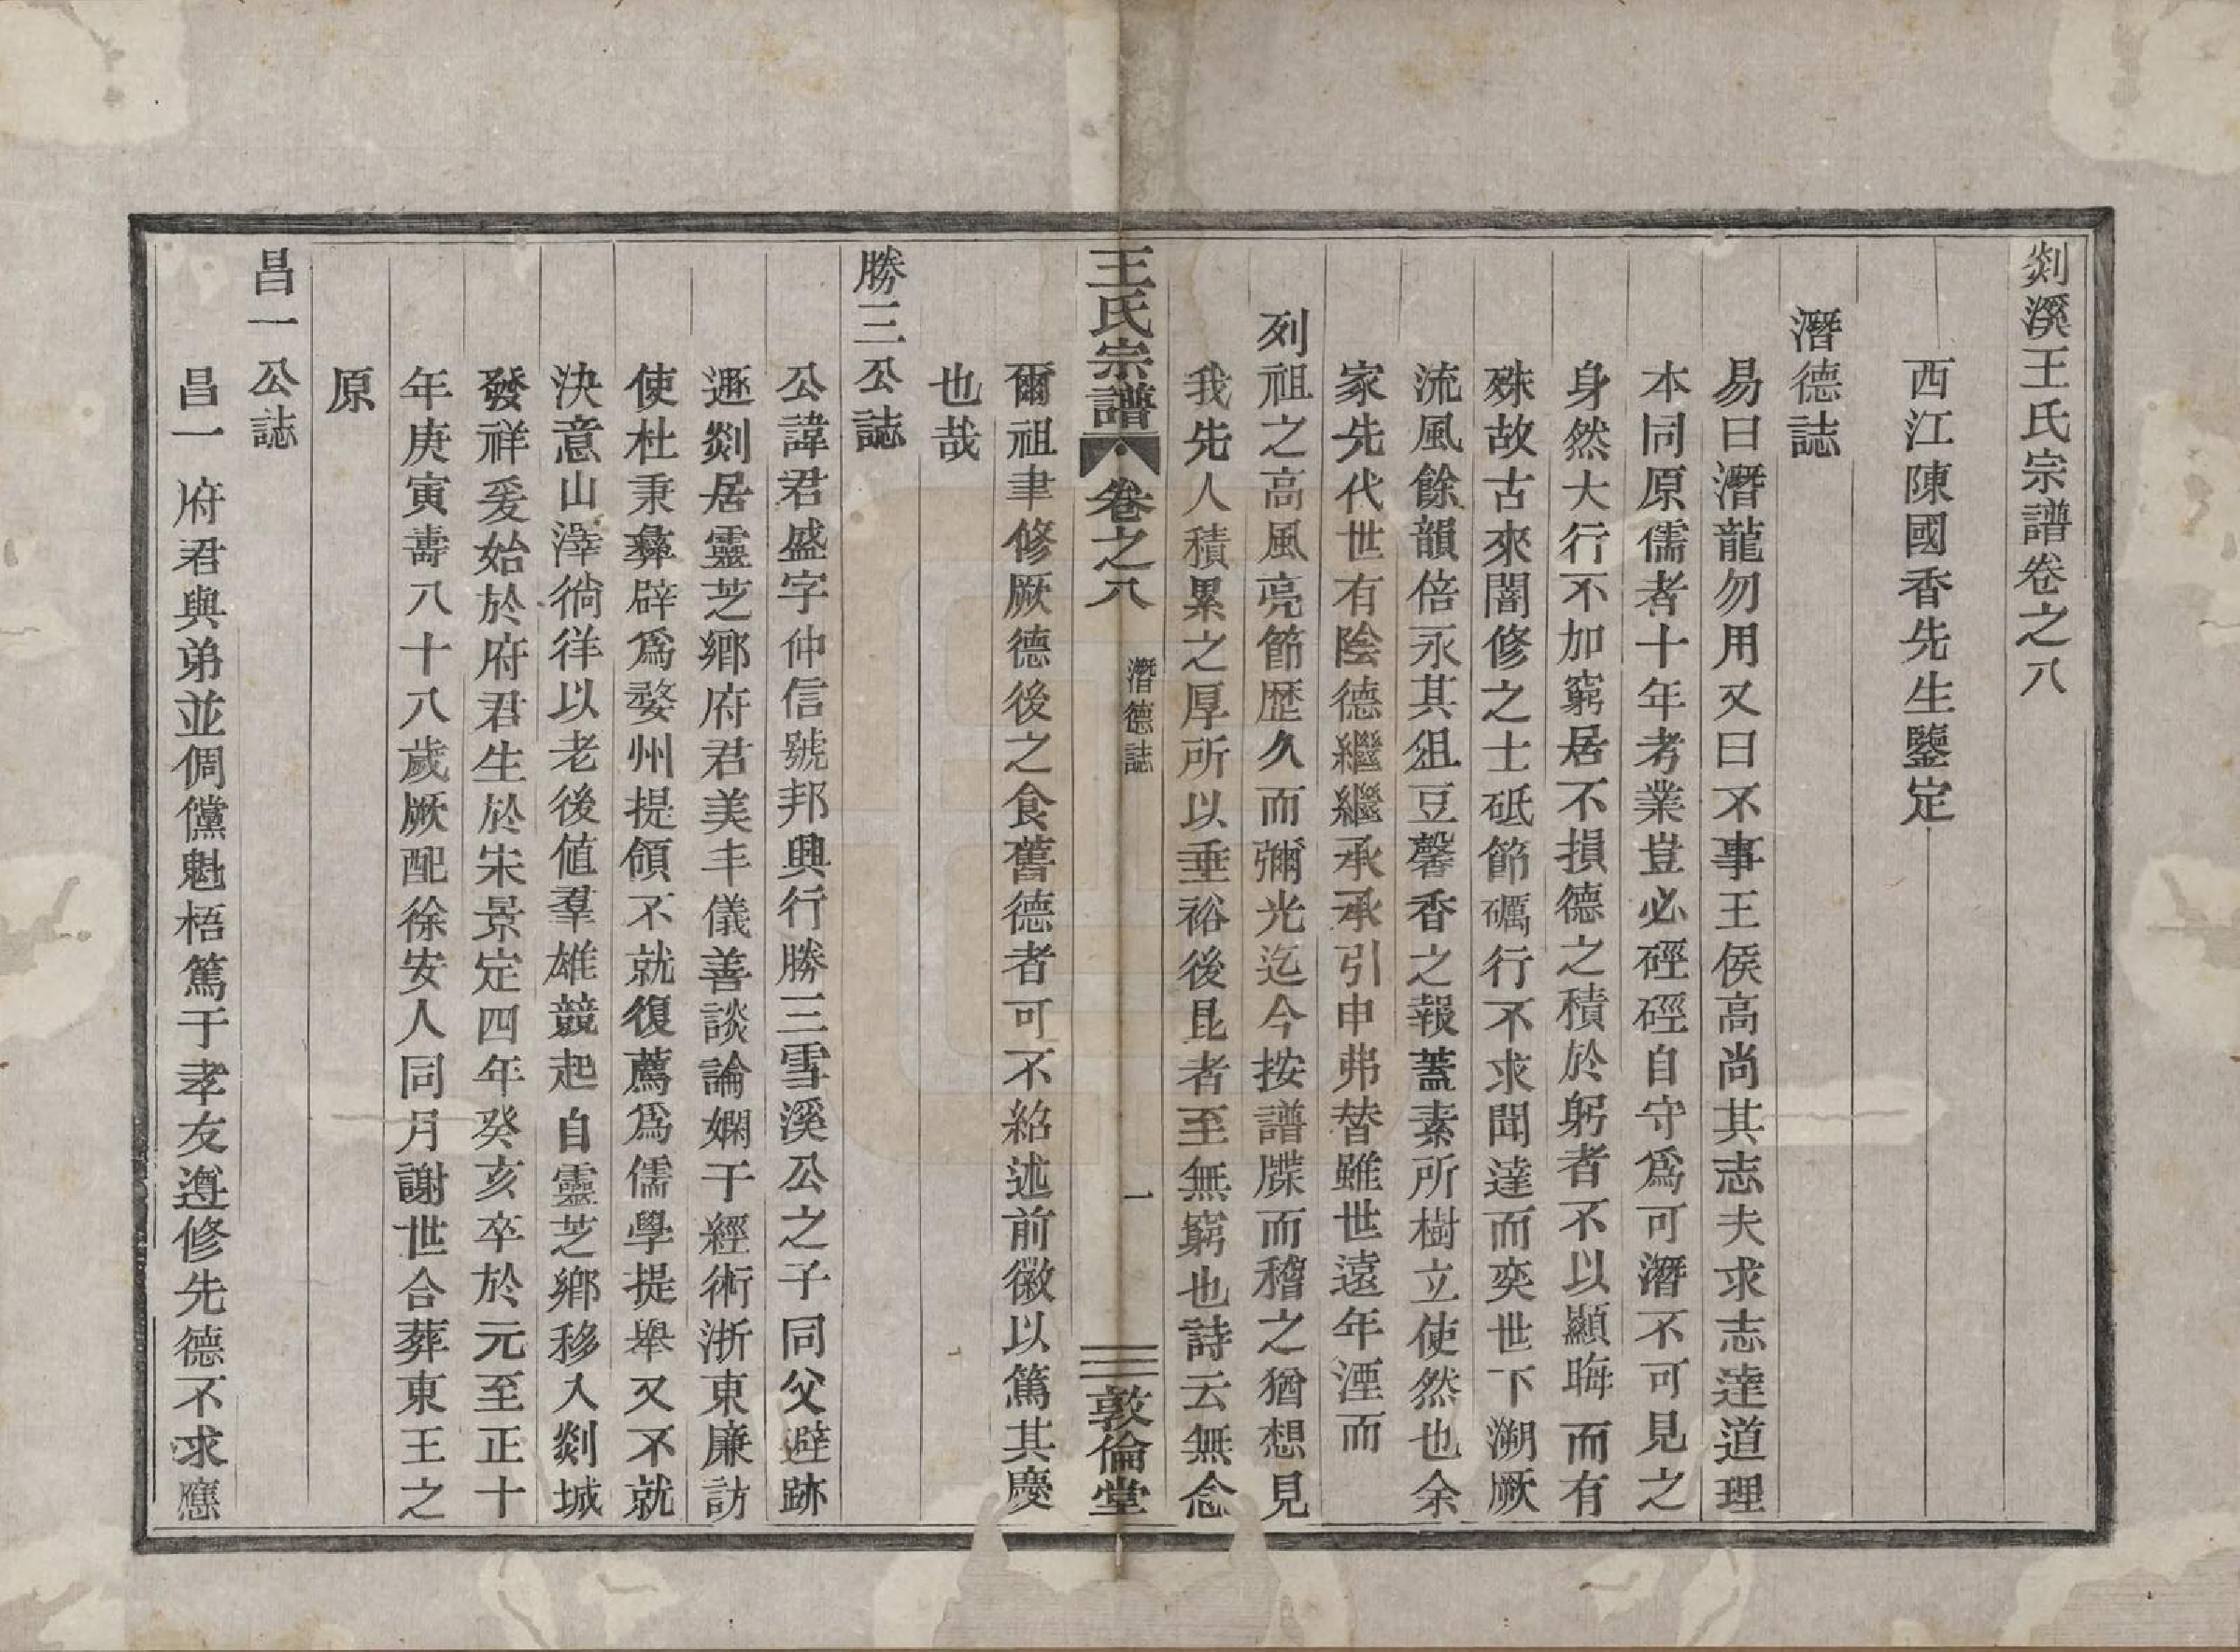 剡溪王氏宗譜卷之八
西江陳國香先生鑒定
潛德誌
易曰潛龍勿用又曰不事王侯高尚其志夫求志達道理
本同原儒者十年考業豈必硜硜自守爲可潛不可見之
身然大行不加窮居不損德之積於躬者不以顯晦而有
殊故古來闇修之士砥節礪行不求聞達而奕世下溯厥
流風餘韻倍永其俎豆馨香之報蓋素所樹立使然也余
家先代世有陰德繼繼承承引申弗替雖世遠年湮而
列祖之高風亮節歷久而彌光迄今按譜牒而稽之猶想見
我先人積累之厚所以垂裕後昆者至無窮也詩云無念
王氏宗譜 卷之八 潛德誌 一 敦倫堂
爾祖聿修厥德後之食舊德者可不紹述前徽以篤其慶
也哉
勝三公誌
公諱君盛字仲信號邦興行勝三雪溪公之子同父避跡
遯剡居靈芝鄉府君美丰儀善談論嫻于經術浙東廉訪
使杜秉彝辟爲婺州提領不就復薦爲儒學提舉又不就
決意山澤徜徉以老後值羣雄競起自靈芝鄉移入剡城
發祥爰始於府君生於宋景定四年癸亥卒於元至正十
年庚寅壽八十八歲厥配徐安人同月謝世合葬東王之
原
昌一公誌
昌一府君與弟並倜儻魁梧篤于孝友遵修先德不求應